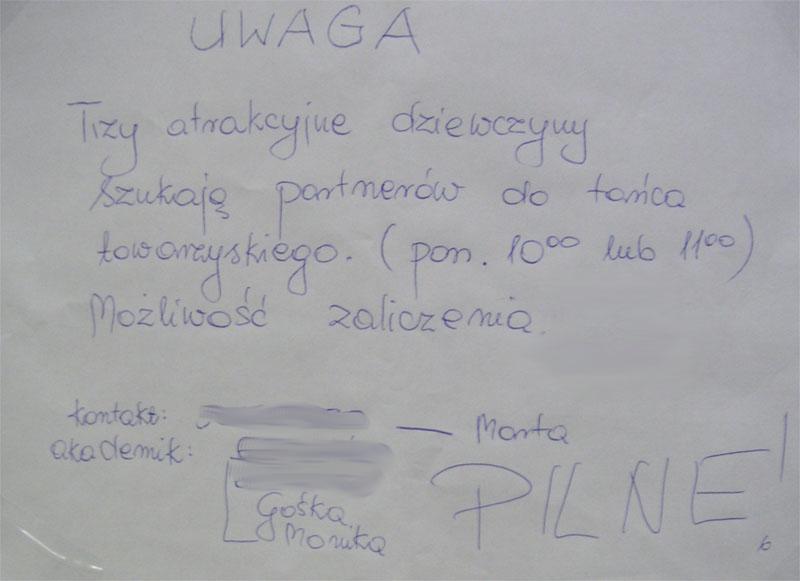 UWAGA
Trzy atrakcyjne dziewczyny
szukają partnerów do tańca
towarzyskiego. (pon. 10⁰⁰ lub 11⁰⁰)
Możliwość zaliczenia.
kontakt: — Marta
akademik:
Gośka,
Monika
PILNE!